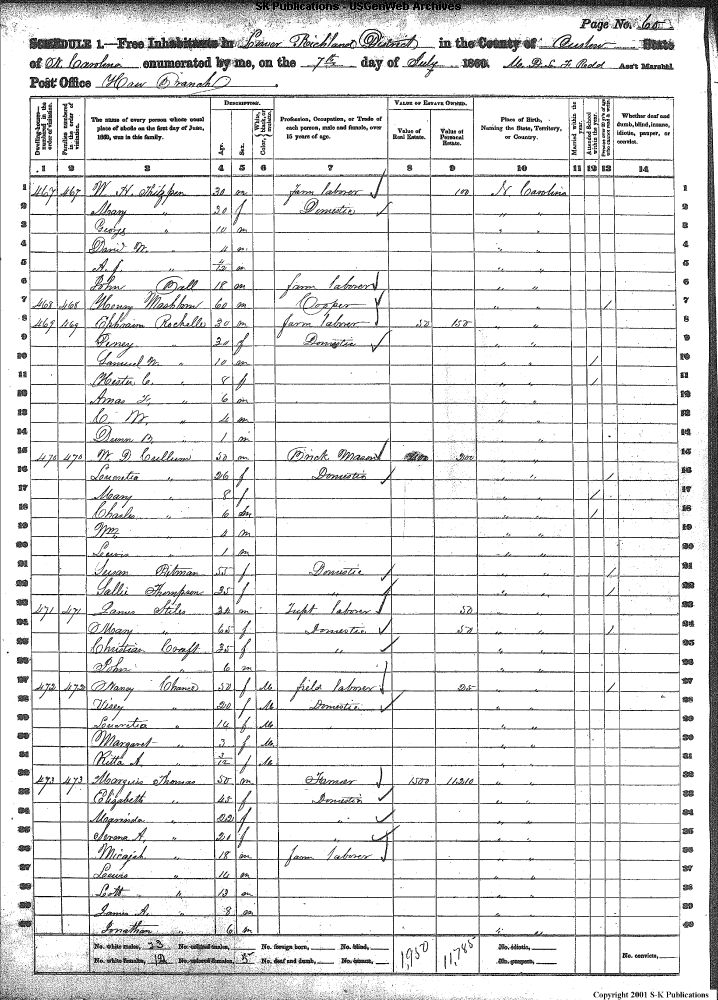 SK Publications - USGenWeb Archives
Page No. 60
SCHEDULE 1.—Free Inhabitants in Lower Richland District in the County of Onslow State
of N. Carolina enumerated by me, on the 7th day of July 1860. Ass't Marshal
Post Office Haw Branch
Dwelling-houses—numbered in the order of visitation.
Families numbered in the order of visitation.
The name of every person whose usual place of abode on the first day of June, 1860, was in this family.
DESCRIPTION.
Age.
Sex.
Color, White, black, or mulatto.
Profession, Occupation, or Trade of each person, male and female, over 15 years of age.
VALUE OF ESTATE OWNED.
Value of Real Estate.
Value of Personal Estate.
Place of Birth, Naming the State, Territory, or Country.
Married within the year.
Attended School within the year.
Whether deaf and dumb, blind, insane, idiotic, pauper, or convict.
1 2 3 4 5 6 7 8 9 10 11 12 13 14
1 467 467 W. H. 30 m farm laborer 100 N Carolina 1
2 Mary " 20 f Domestic " " 2
3 " 10 m " " 3
4 David W. " 4 m " " 4
5 A. J. " m " " 5
6 John Ball 18 m farm laborer " " 6
7 468 468 Henry 60 m Cooper " / 7
8 469 469 Ephraim Rochelle 30 m farm laborer 50 150 " " 8
9 " 30 f Domestic " " 9
10 Samuel W. " 10 m " " / 10
11 Hester C. " 8 f " " / 11
12 Amos F. " 6 m " " 12
13 C. W. " 4 m " " 13
14 " 1 m " 14
15 470 470 W. D. Cullum 50 m Brick Mason 200 " " 15
16 Lucretia " 26 f Domestic " " / 16
17 Mary " 8 f " " / 17
18 Charles " 6 m " " / 18
19 Wm. 4 m " " 19
20 Lewis " 1 m " " 20
21 Susan Pitman 55 f Domestic " " / 21
22 Sallie Thompson 35 f " " " / 22
23 471 471 James Stiles 22 m Turpt laborer 50 " " 23
24 Mary " 65 f Domestic 50 " " / 24
25 Christian Craft 35 f " " " 25
26 John " 6 m " " 26
27 472 472 Nancy Chance 50 f M field laborer 25 " " / 27
28 " 20 f M Domestic " " 28
29 Lucretia " 14 f M " " 29
30 Margaret " 3 f M " " 30
31 Kitta A. " 3/12 f M " " 31
32 473 473 Marquis Thomas 50 m Farmer 1500 11210 " " 32
33 Elizabeth " 45 f Domestic " " 33
34 " 22 f " " " 34
35 " 20 f " " " 35
36 Micajah " 18 m farm laborer " " 36
37 Lewis " 14 m " " 37
38 Lott " 13 m " " 38
39 James A. " 8 m " " 39
40 Jonathan " 6 m " " 40
No. white males, 23 No. colored males, No. foreign born, No. blind, 1,950 11,785 No. idiotic,
No. white females, 12 No. colored females, 5 No. deaf and dumb, No. insane, No. paupers, No. convicts,
Copyright 2001 S-K Publications